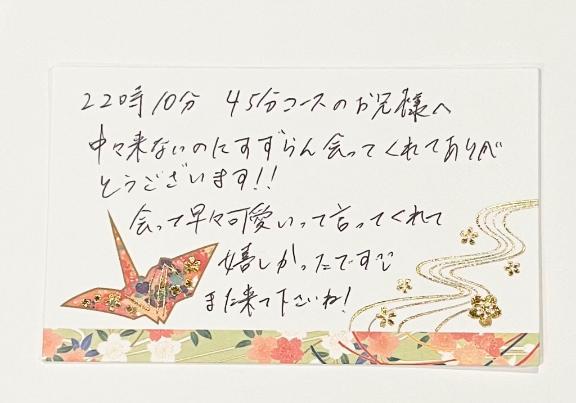 22時10分 45分コースのお兄様へ
中々来ないのにすずらん会ってくれてありが
とうございます!!
会って早々可愛いって言ってくれて
嬉しかったです
また来て下さいね!